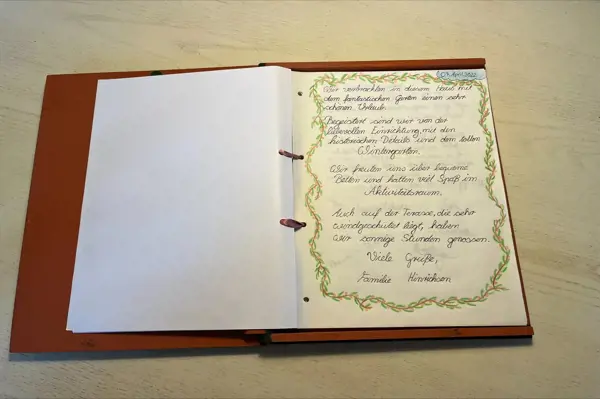 07. April 2022
Wir verbrachten in diesem Haus mit
dem fantastischen Garten einen sehr
schönen Urlaub.
Begeistert sind wir von der
liebevollen Einrichtung mit den
historischen Details und dem tollen
Wintergarten.
Wir freuten uns über bequeme
Betten und hatten viel Spaß im
Aktivitätsraum.
Auch auf der Terrasse, die sehr
windgeschützt liegt, haben
wir sonnige Stunden genossen.
Viele Grüße,
Familie Hinrichsen